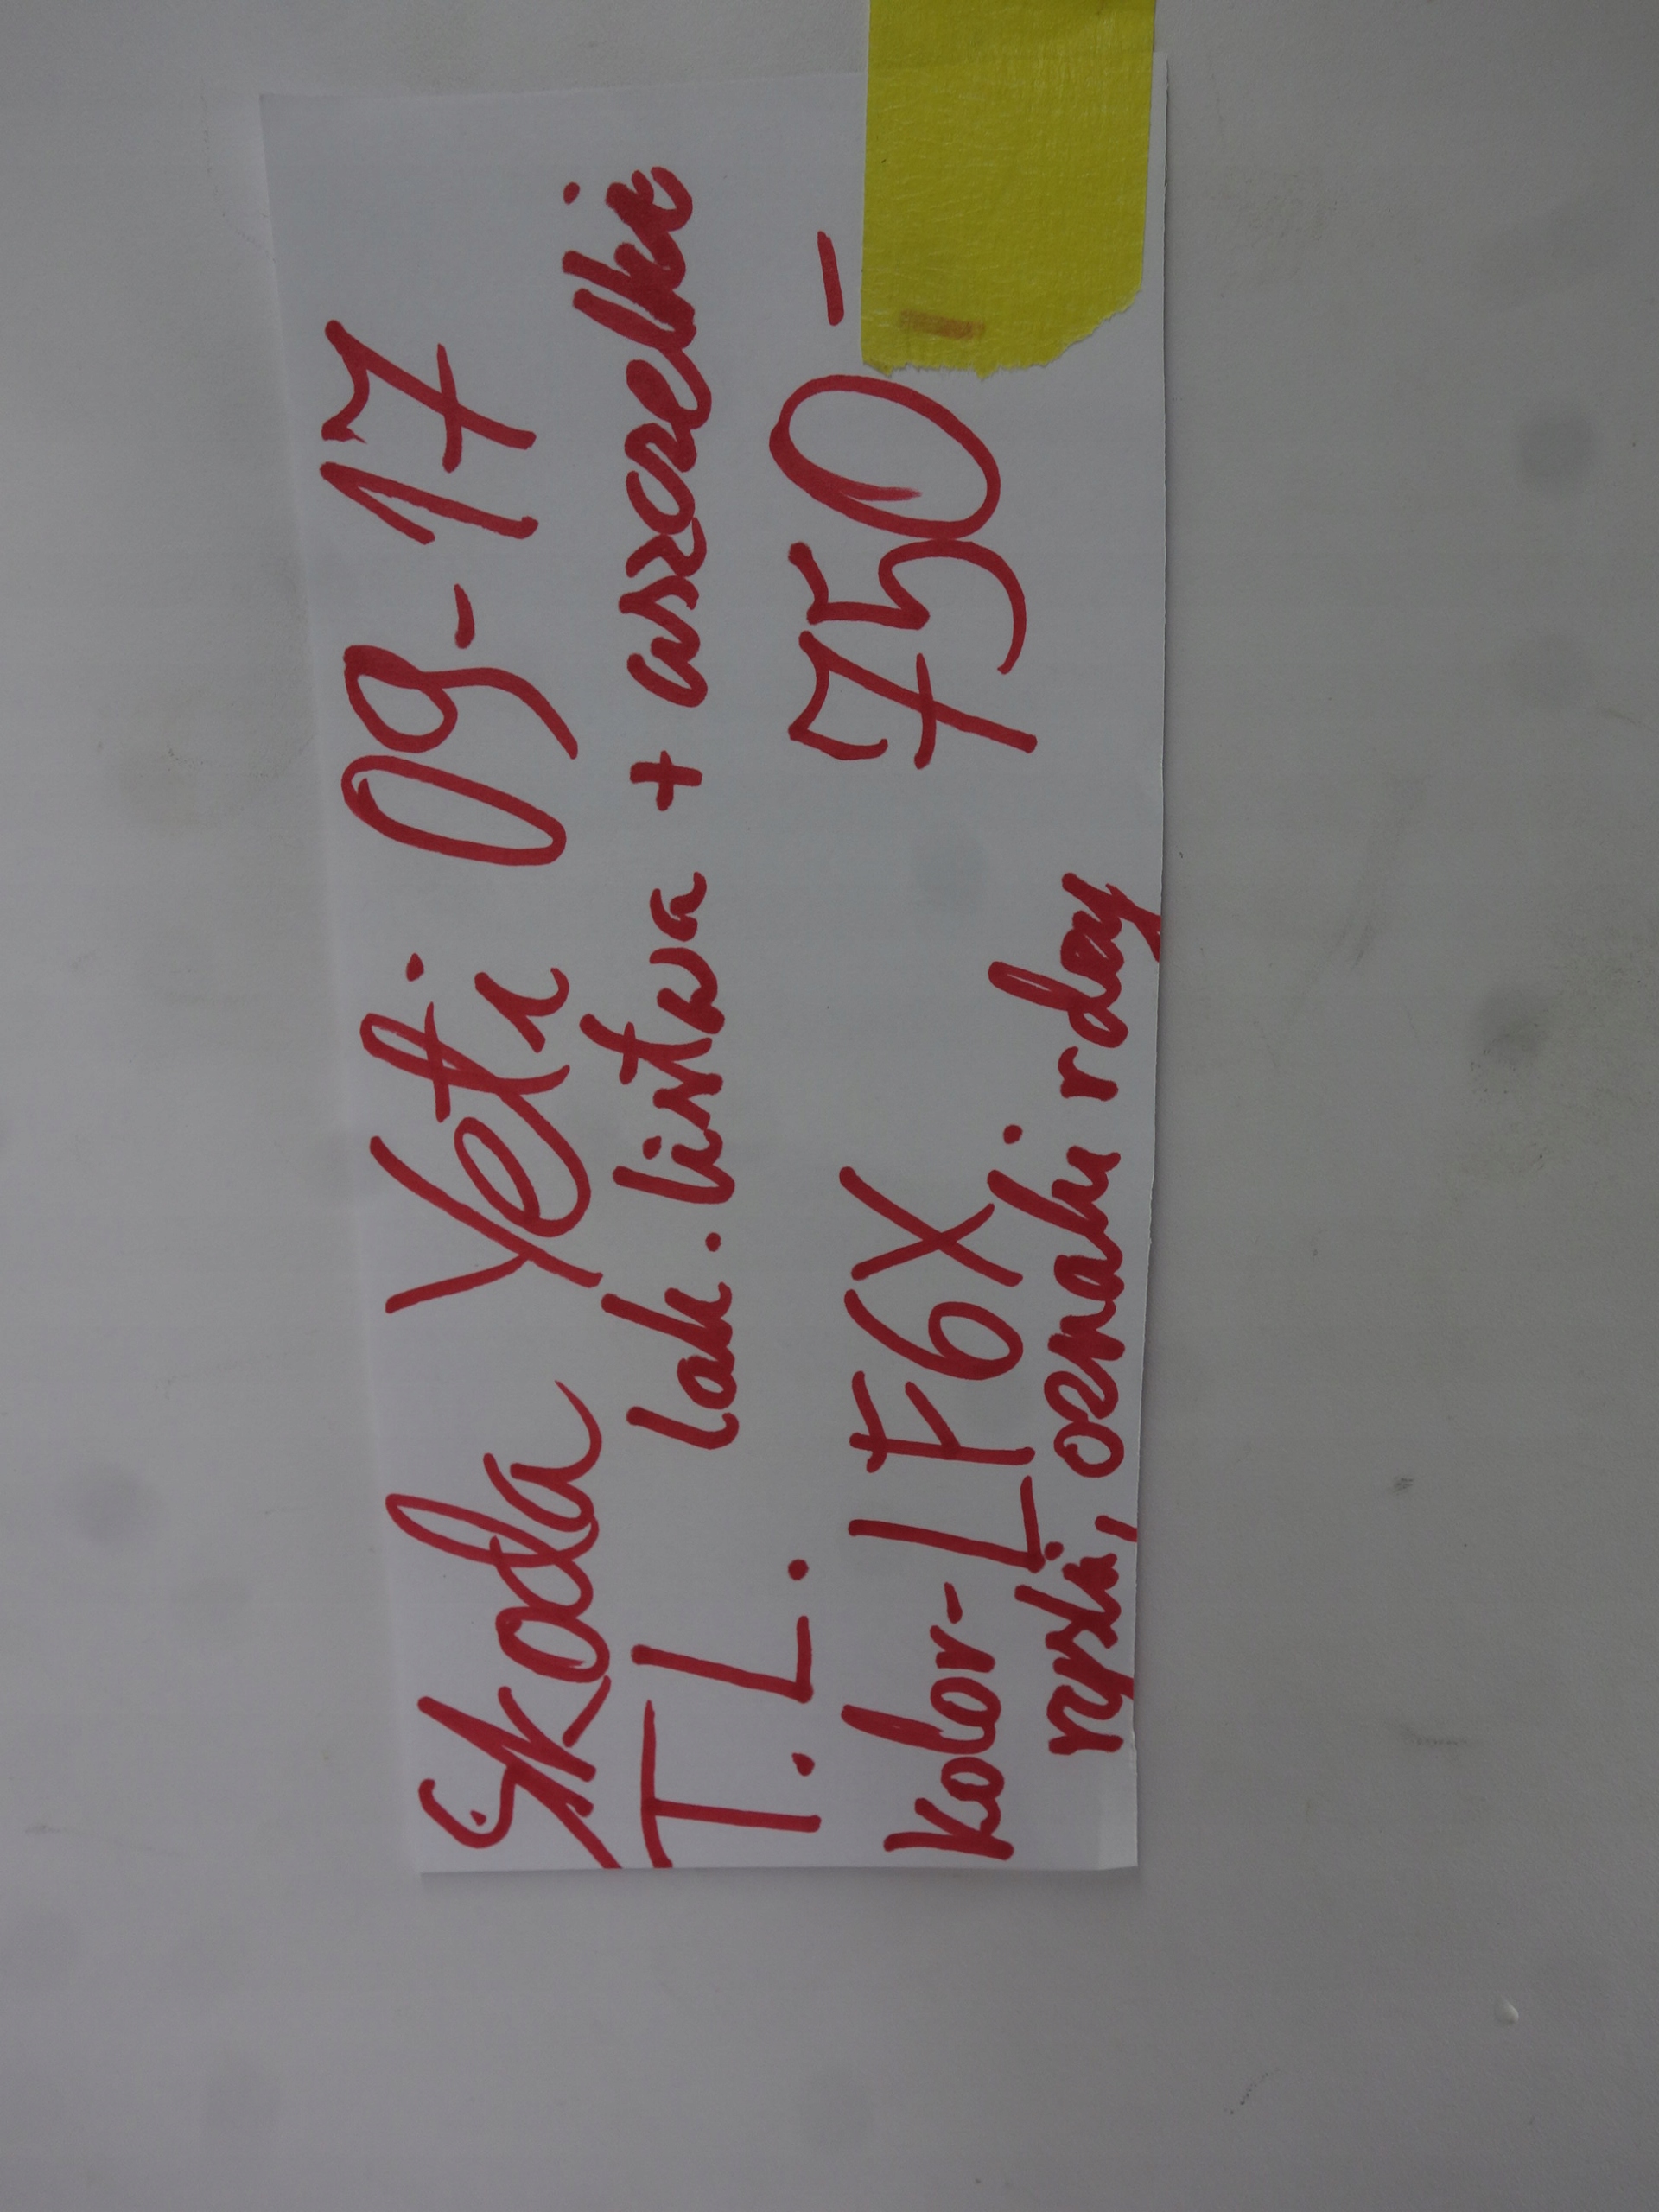 Skoda Yeti 09-17
T.L. lak. listwa + uszczelki
kolor - LF6X 750 -
ryski, oznaki rdzy